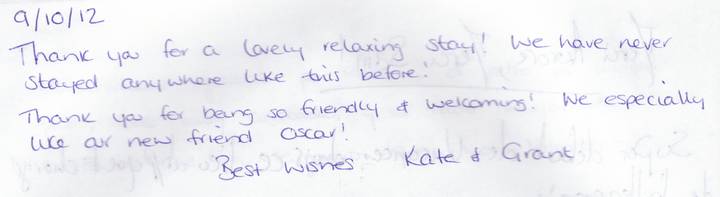 9/10/12
Thank you for a lovely relaxing stay! We have never
stayed anywhere like this before!
Thank you for being so friendly & welcoming! We especially
like our new friend Oscar!
Best wishes Kate & Grant